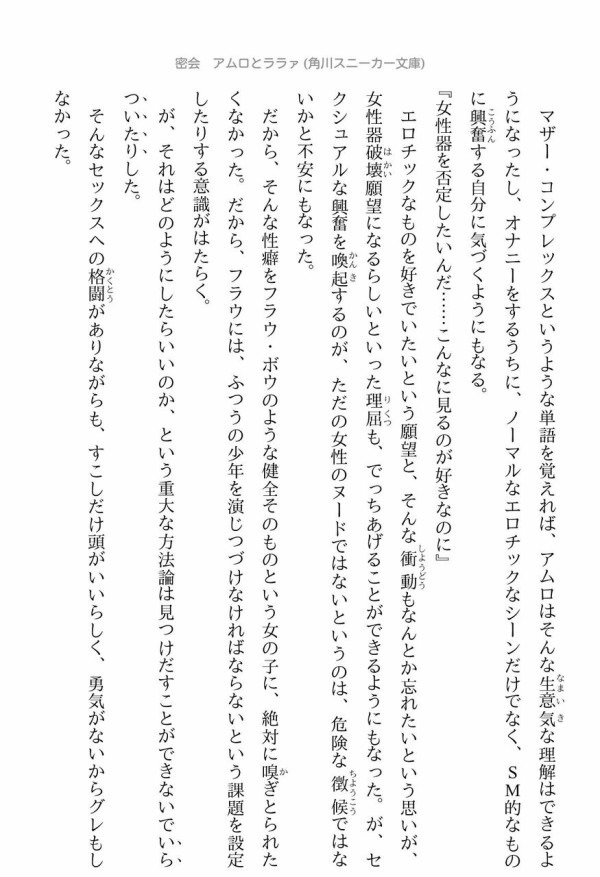 密会 アムロとララァ (角川スニーカー文庫)
マザー・コンプレックスというような単語を覚えれば、アムロはそんな生意気な理解はできるよ
うになったし、オナニーをするうちに、ノーマルなエロチックなシーンだけでなく、SM的なもの
に興奮する自分に気づくようにもなる。
『女性器を否定したいんだ……こんなに見るのが好きなのに』
エロチックなものを好きでいたいという願望と、そんな衝動もなんとか忘れたいという思いが、
女性器破壊願望になるらしいといった理屈も、でっちあげることができるようにもなった。が、セ
クシュアルな興奮を喚起するのが、ただの女性のヌードではないというのは、危険な徴候ではな
いかと不安にもなった。
だから、そんな性癖をフラウ・ボウのような健全そのものという女の子に、絶対に嗅ぎとられた
くなかった。だから、フラウには、ふつうの少年を演じつづけなければならないという課題を設定
したりする意識がはたらく。
が、それはどのようにしたらいいのか、という重大な方法論は見つけだすことができないでいら
ついたりした。
そんなセックスへの格闘がありながらも、すこしだけ頭がいいらしく、勇気がないからグレもし
なかった。